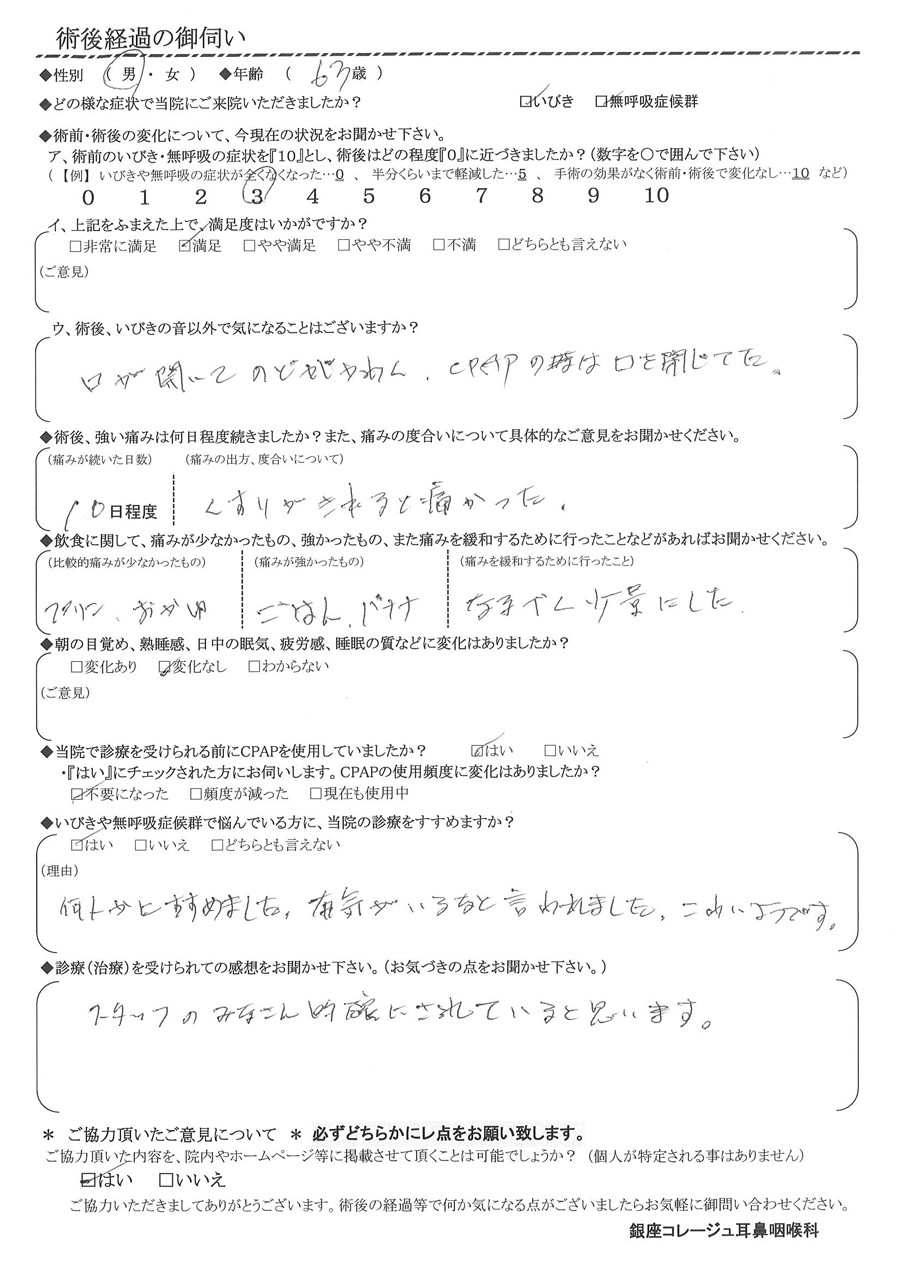 術後経過の御伺い
◆性別 （ 男 ・ 女 ） ◆年齢 （ 63歳 ）
◆どの様な症状で当院にご来院いただきましたか？ ☑いびき ☑無呼吸症候群
◆術前・術後の変化について、今現在の状況をお聞かせ下さい。
ア、術前のいびき・無呼吸の症状を『10』とし、術後はどの程度『0』に近づきましたか？（数字を〇で囲んで下さい）
（ 【例】 いびきや無呼吸の症状が全くなくなった…0 、 半分くらいまで軽減した…5 、 手術の効果がなく術前・術後で変化なし…10 など）
0 1 2 3 4 5 6 7 8 9 10
イ、上記をふまえた上で、満足度はいかがですか？
□非常に満足 ☑満足 □やや満足 □やや不満 □不満 □どちらとも言えない
（ご意見）
ウ、術後、いびきの音以外で気になることはございますか？
口が開いてのどがかわく、CPAPの時は口を閉じてた。
◆術後、強い痛みは何日程度続きましたか？また、痛みの度合いについて具体的なご意見をお聞かせください。
（痛みが続いた日数） （痛みの出方、度合いについて）
10日程度 くすりがきれると痛かった．
◆飲食に関して、痛みが少なかったもの、強かったもの、また痛みを緩和するために行ったことなどがあればお聞かせください。
（比較的痛みが少なかったもの） （痛みが強かったもの） （痛みを緩和するために行ったこと）
プリン、おかゆ ごはん、バナナ なるべく少量にした．
◆朝の目覚め、熟睡感、日中の眠気、疲労感、睡眠の質などに変化はありましたか？
□変化あり ☑変化なし □わからない
（ご意見）
◆当院で診療を受けられる前にCPAPを使用していましたか？ ☑はい □いいえ
・『はい』にチェックされた方にお伺いします。CPAPの使用頻度に変化はありましたか？
☑不要になった □頻度が減った □現在も使用中
◆いびきや無呼吸症候群で悩んでいる方に、当院の診療をすすめますか？
☑はい □いいえ □どちらとも言えない
（理由）
何人かにすすめました。勇気がいるなと言われました。こわいようです。
◆診療（治療）を受けられての感想をお聞かせ下さい。（お気づきの点をお聞かせ下さい。）
スタッフのみなさん的確にされていると思います。
＊ ご協力頂いたご意見について ＊ 必ずどちらかにレ点をお願い致します。
ご協力頂いた内容を、院内やホームページ等に掲載させて頂くことは可能でしょうか？ （個人が特定される事はありません）
☑はい □いいえ
ご協力いただきましてありがとうございます。術後の経過等で何か気になる点がございましたらお気軽に御問い合わせください。
銀座コレージュ耳鼻咽喉科